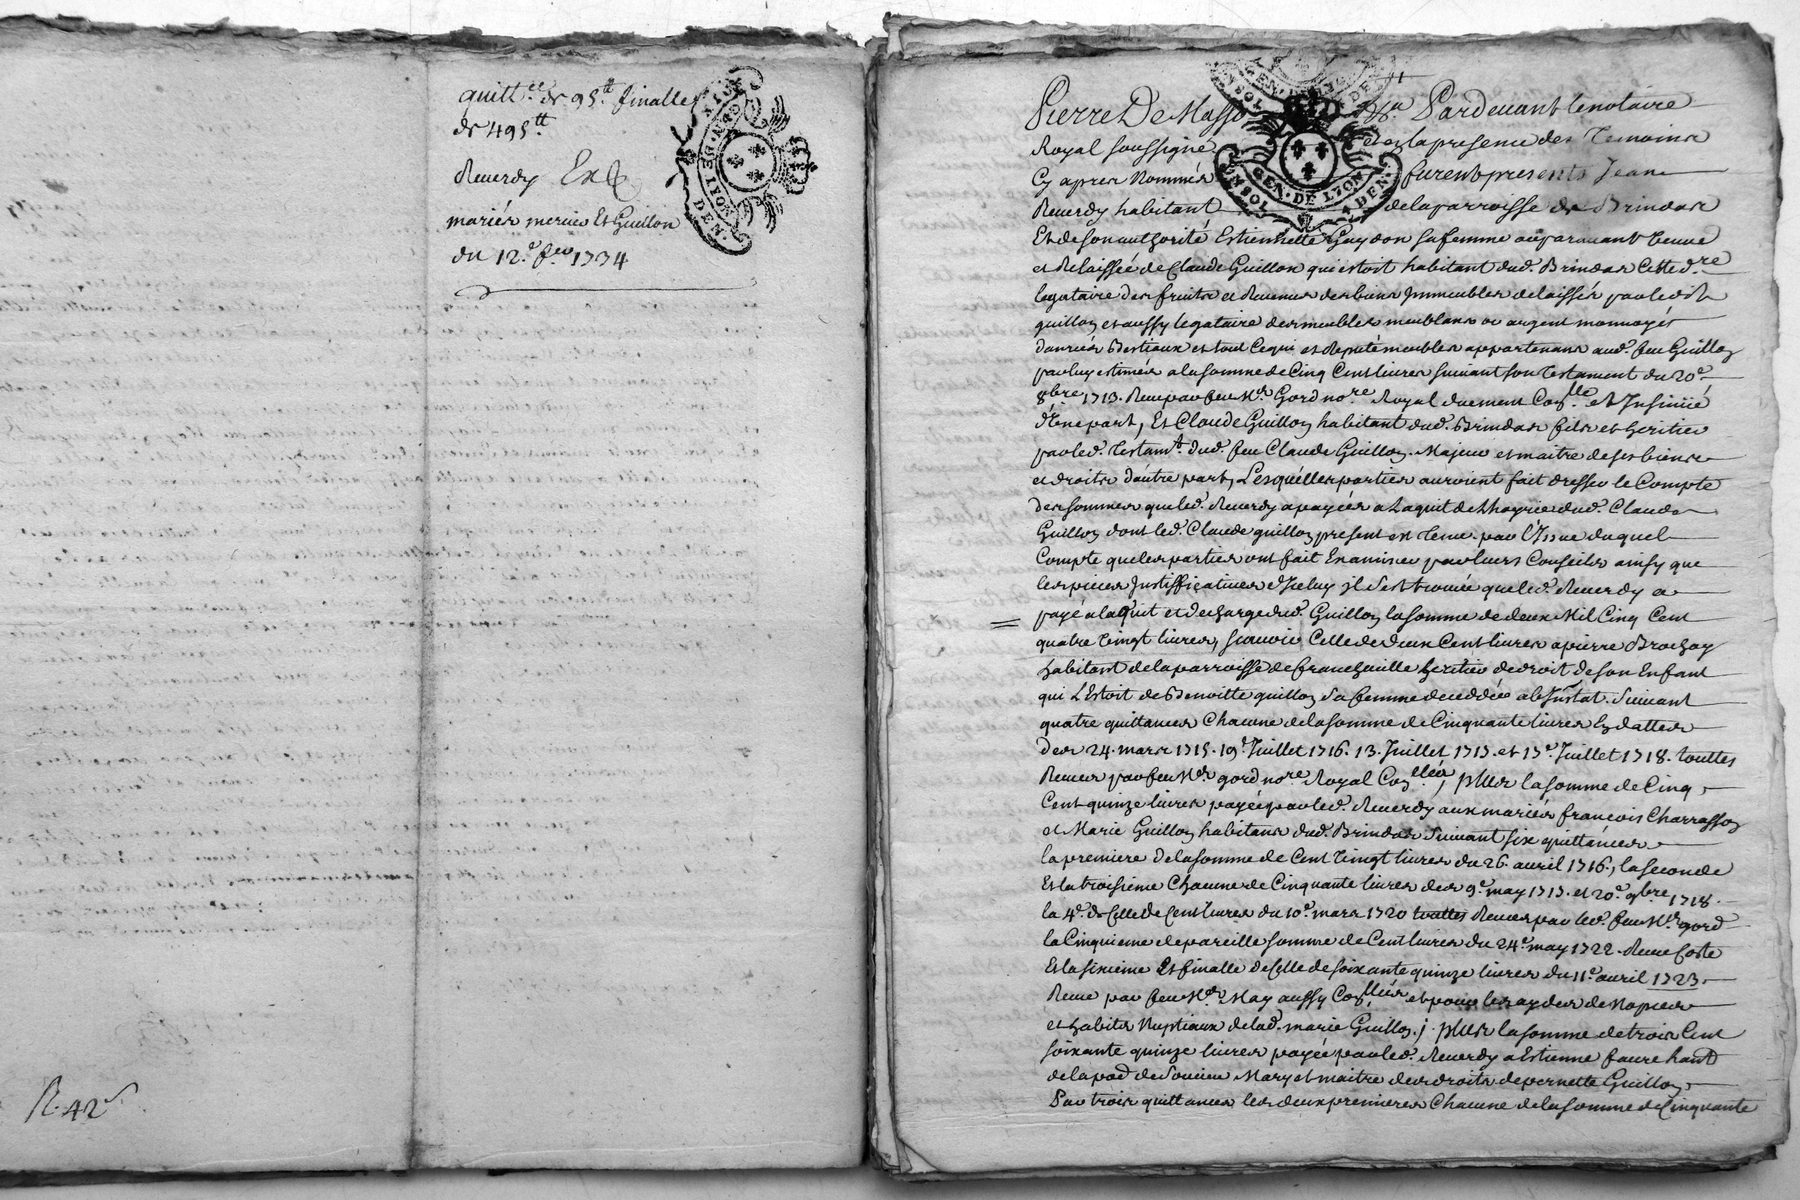 quitt.ce de 95.tt finalle
de 495.tt
Reverdy
mariés mercier Et Guillon
du 12.e fev 1734
GEN. DE LYON
DEN.
R. 42
GEN. DE LYON
Pierre De Masso Pardevant le notaire
CONSOL. GEN. DE LYON 4 DEN.
Royal soussigné et en la presence des Temoins
Cy apres Nommés furent presents Jean
Reverdy habitant de la parroisse de Brindas
Et de son authorité Estiennette Gaydon sa femme auparavant veuve
et Relaissée de Claude Guillon qui estoit habitant dud. Brindas Cette d.re
legataire des fruits et Revenus des biens Immeubles delaissés par ledit
guillon et aussy legataire des meubles meublans or argent monnoyés
danrées Bestiaux et tout Ce qui est reputé meubles appartenans aud. feu Guillon
par luy estimés a la somme de Cinq Cent livres suivant son Testament du 20.e
8bre 1713. Receu par feu M.r Gord no.re Royal duement Con.lle et Insinüé
d'Une part, Et Claude Guillon habitant dud. Brindas fils et heritier
par led. Testam.t dud. feu Claude Guillon. Majeur et maitre de ses biens
et droits d'autre part, Lesquelles parties auroient fait dresser le Compte
des sommes que led. Reverdy a payées a Laquit de L'hoyrie dud. Claude
Guillon dont led. Claude guillon present est Tenu. par l'Issue duquel
Compte que les parties ont fait Examiner par leurs Conseils ainsy que
les pieces Justifficatives d'Iceluy il s'est trouvé que led. Reverdy a
payé a laquit et decharge dud. Guillon la somme de deux Mil Cinq Cent
quatre vingt livres, scavoir Celle de Deux Cent livres a pierre Brochay
habitant de la parroisse de francheville heritier de droit de son Enfant
qui L'Estoit de Benoitte guillon sa femme deceddée ab Intestat. Suivant
quatre quittances Chacune de la somme de Cinquante livres En datte
des 24. mars 1715. 19.e Juillet 1716. 13. Juillet 1717 et 17.e Juillet 1718. touttes
Receues par feu M.r gord no.re Royal Con.llées, plus la somme de Cinq
Cent quinze livres payée par led. Reverdy aux mariés françois Charrasson
et Marie Guillon habitans dud. Brindas Suivant six quittances
la premiere de la somme de Cent vingt livres du 26. avril 1716, la seconde
Et la troisieme Chacune de Cinquante livres des 9.e may 1717. et 20.e 9bre 1718.
la 4.e de Celle de Cent livres du 10.e mars 1720 touttes Receues par led. feu M.r gord
la Cinquieme de pareille somme de Cent livres du 24.e may 1722. Receue Coste
Et la sixieme Et finalle de Celle de soixante quinze livres du 11.e avril 1723.
Receue par feu M.r May aussy Con.llées et pour les aydes de Nopces
et habits Nuptiaux de lad. marie Guillon; plus la somme de trois Cent
soixante quinze livres payée par led. Reverdy a Estienne faure hant
de la par. de Soucieu Mary et maitre des droits de pernette Guillon
Par trois quittances les deux premieres Chacune de la somme de Cinquante